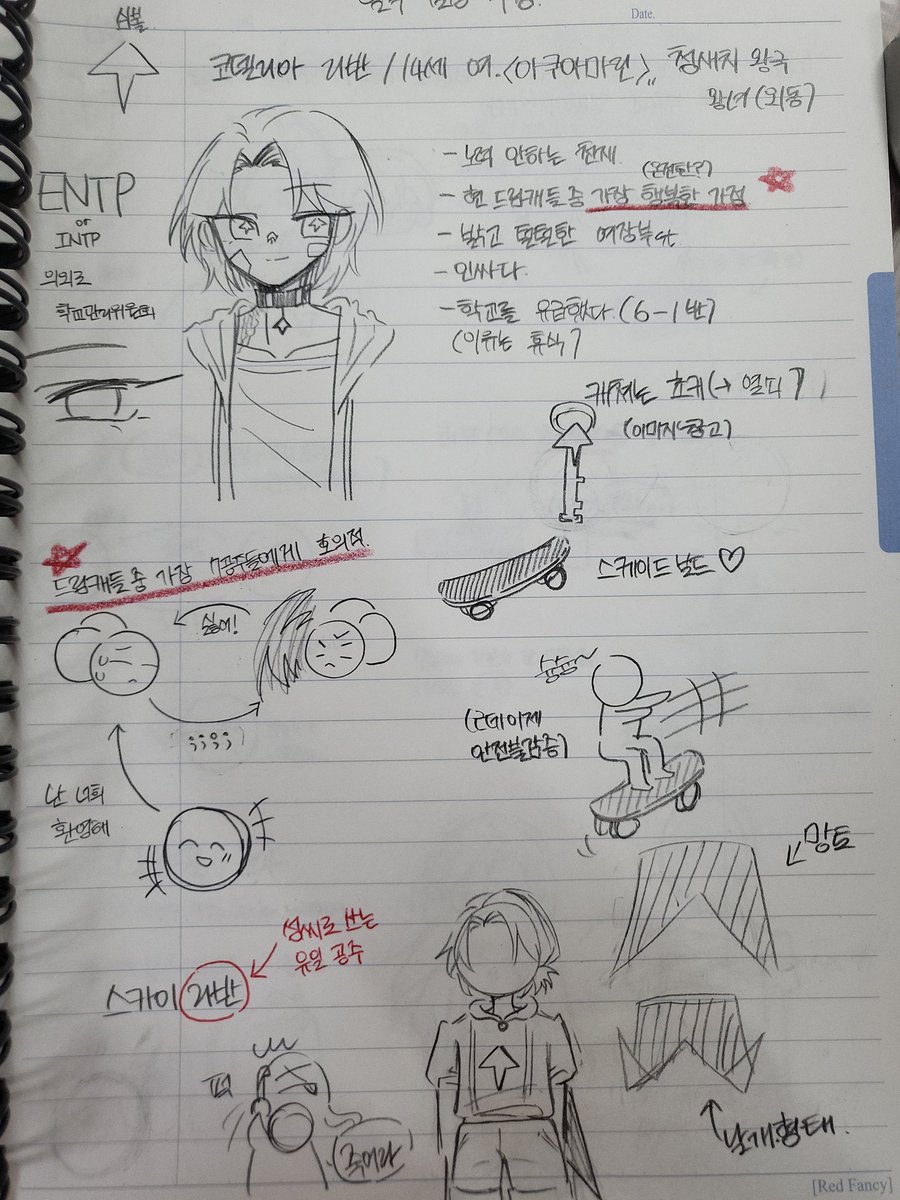 Date.
심볼
코델리아 리반 / 14세 여. <아쿠아마린>,, 청새치 왕국
왕녀 (외동)
ENTP
or
INTP
의외로
학교관리위원회
- 노력 안하는 천재.
(온전한?)
- 현 드림캐들 중 가장 행복한 가정
- 밝고 털털한 여장부st
- 인싸다.
- 학교를 유급했다. (6-1반)
(이유는 휴식)
캐체는 호케(→ 열피)
(이미지 참고)
스케이드 보드 ♡
드림캐들 중 가장 7공주들에게 호의적
싫어!
(;;;;)
난 너희
환영해
슝슝~
(근데 이제
안전불감증)
망토
성씨로 쓰는
유일 공주
스카이 리반
퍽
죽어라
날개형태.
[Red Fancy]